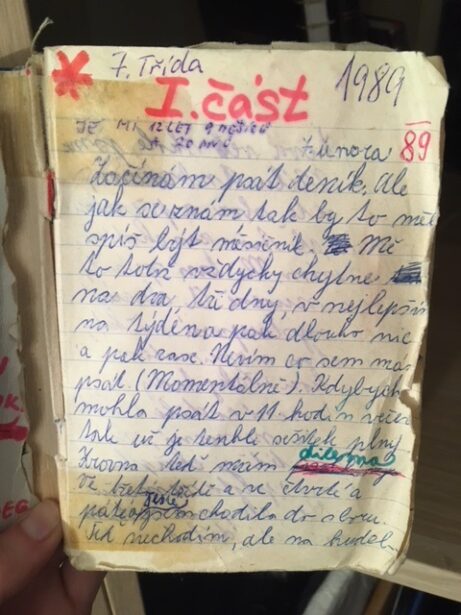 7. Třída
1989
I. část
JE MI 12 LET 9 MĚSÍCŮ
20 DNŮ
7. února 89
Začínám psát deník. Ale
jak se znám tak by to měl
spíš být měsíčník. Mě
to totiž vždycky chytne
na dva, tři dny, v nejlepším
na týden a pak dlouho nic
a pak zase. Nevím co sem mam
psát. (Momentálně). Kdybych
mohla psát v 11 hodin večer
tak už je tenhle sešitek plný
Zrovna teď mám dilema
Ve třetí třídě a ve čtvrté a
páté jsem ještě chodila do sboru.
Teď nechodím, ale na hudeb-